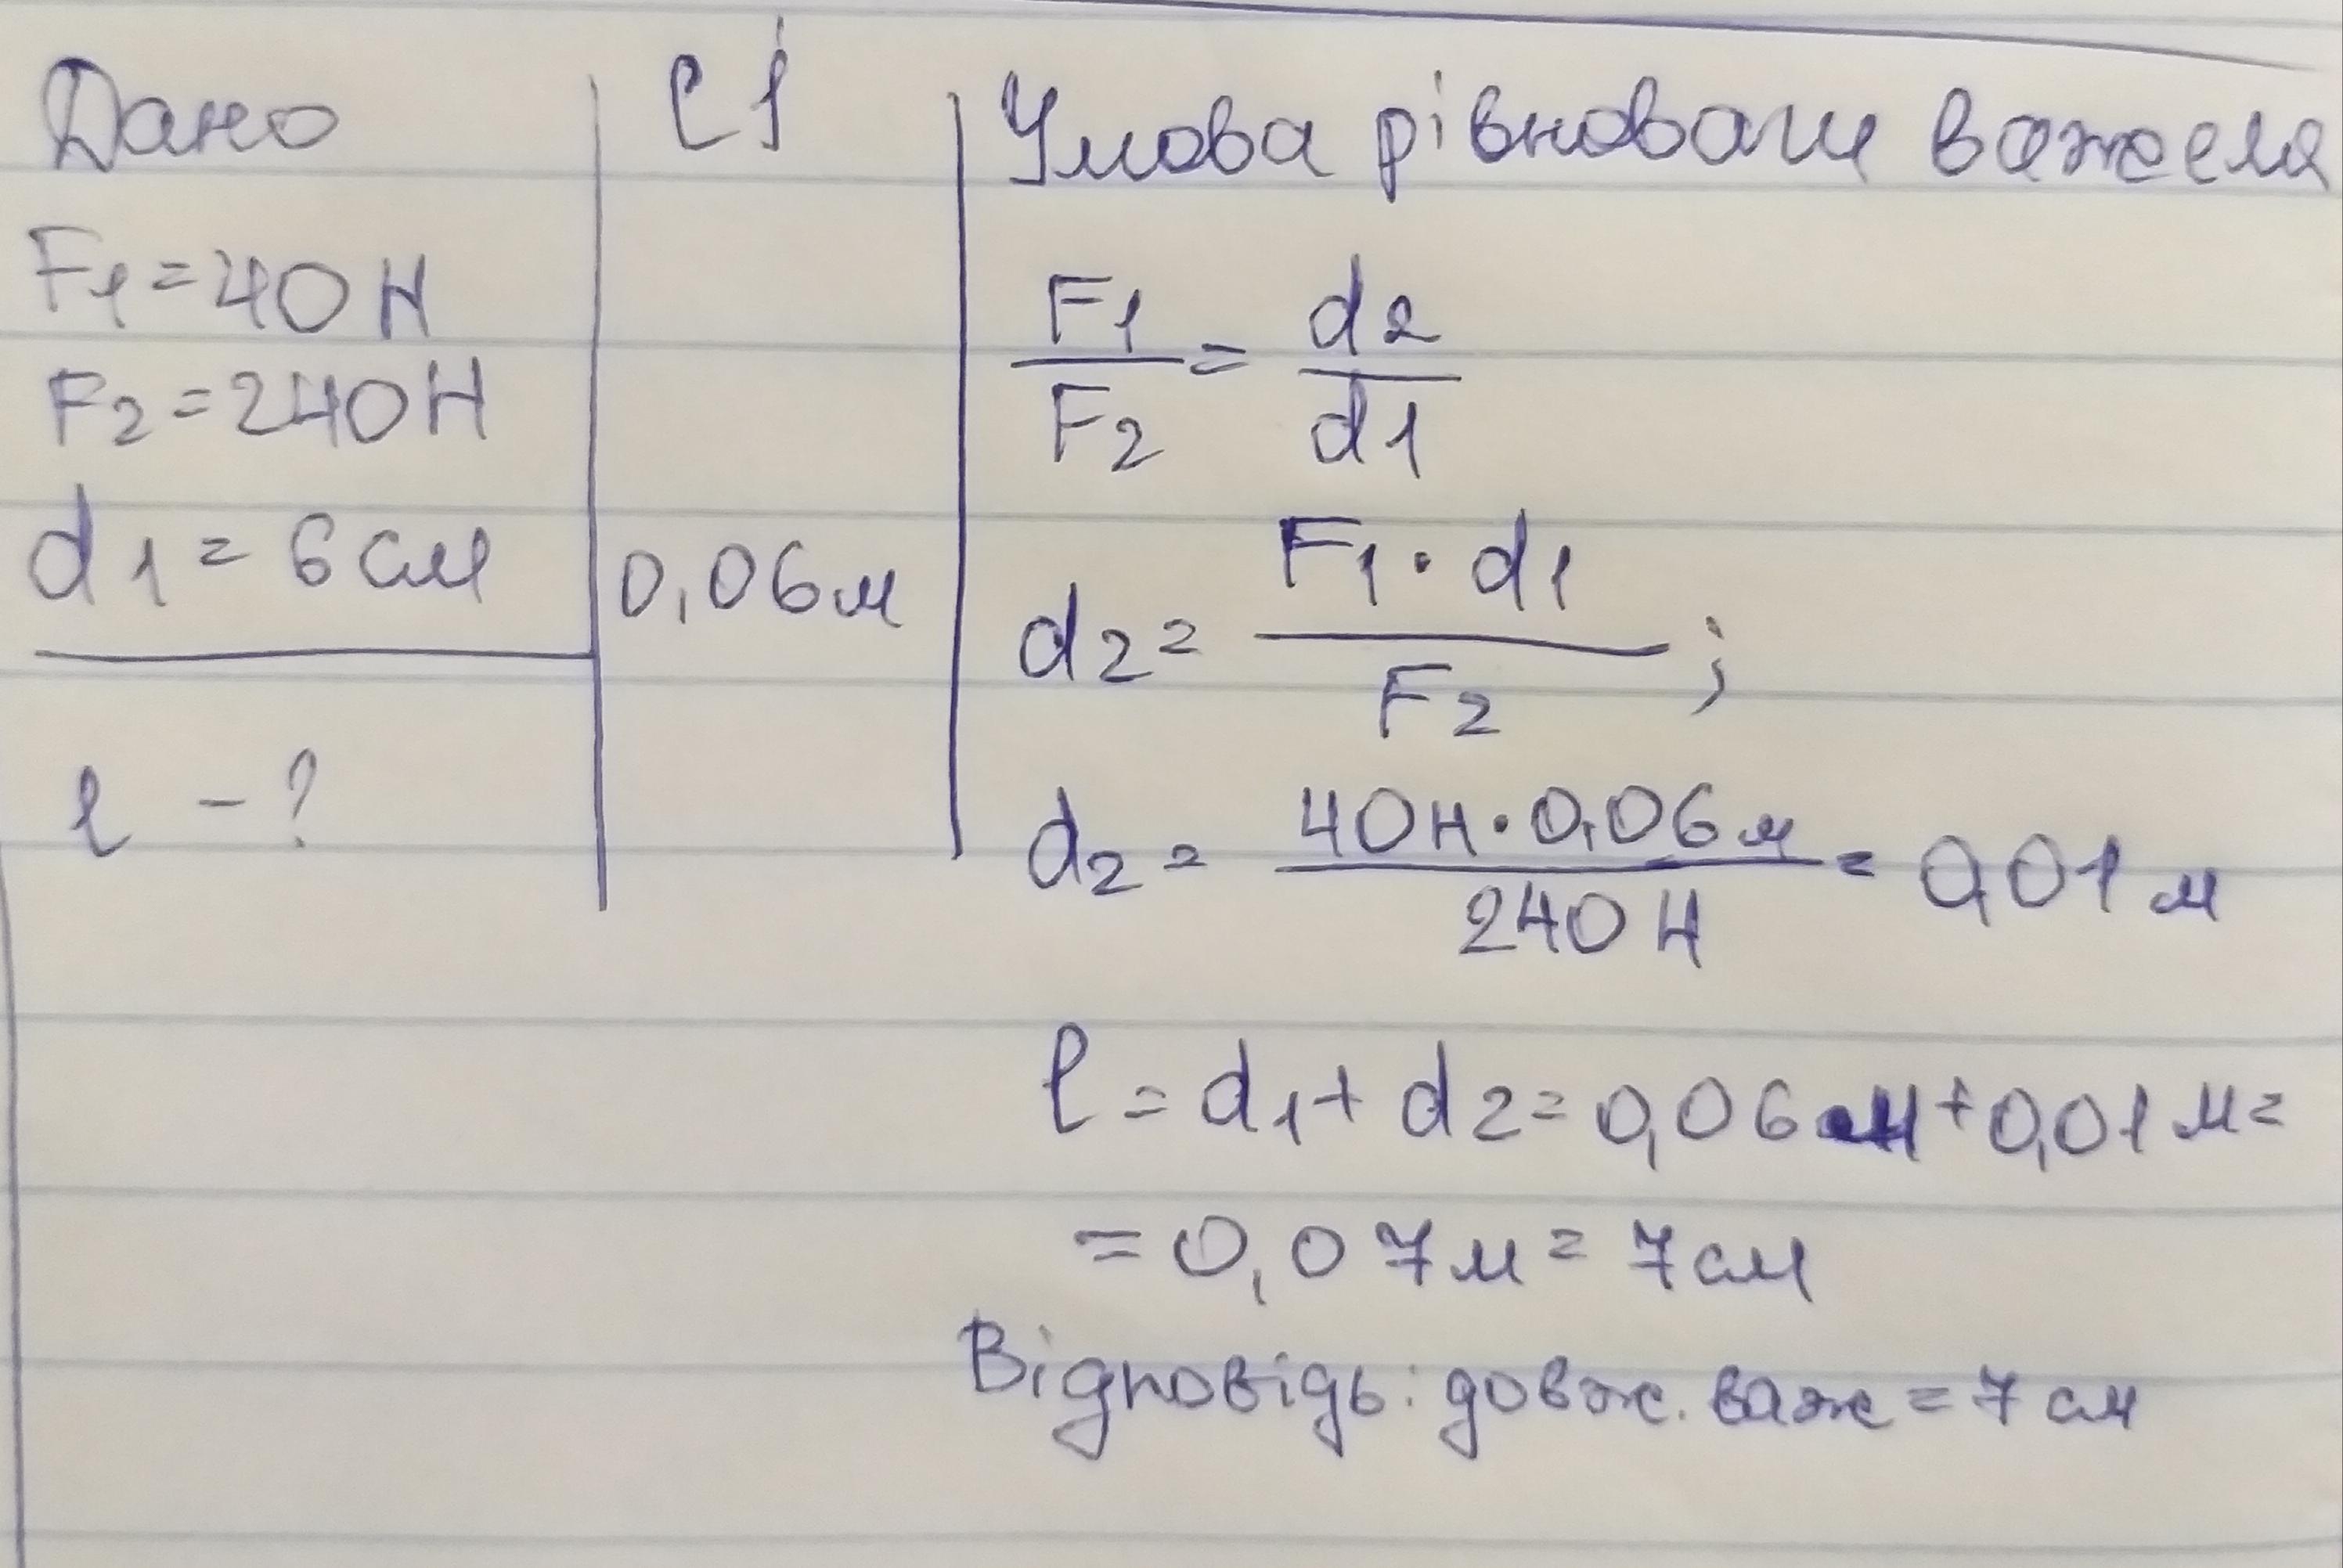 Дано
F1 = 40 Н
F2 = 240 Н
d1 = 6 см
l - ?
СІ
0,06 м
Умова рівноваги важеля
F1/F2 = d2/d1
d2 = F1 · d1 / F2 ;
d2 = 40 Н · 0,06 м / 240 Н = 0,01 м
l = d1 + d2 = 0,06 м + 0,01 м =
= 0,07 м = 7 см
Відповідь: довж. важ = 7 см